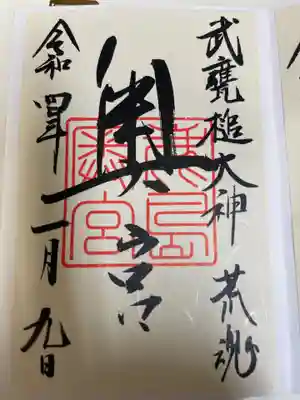 武甕槌大神 荒魂
奥宮
鹿島
奥宮
令和四年二月九日